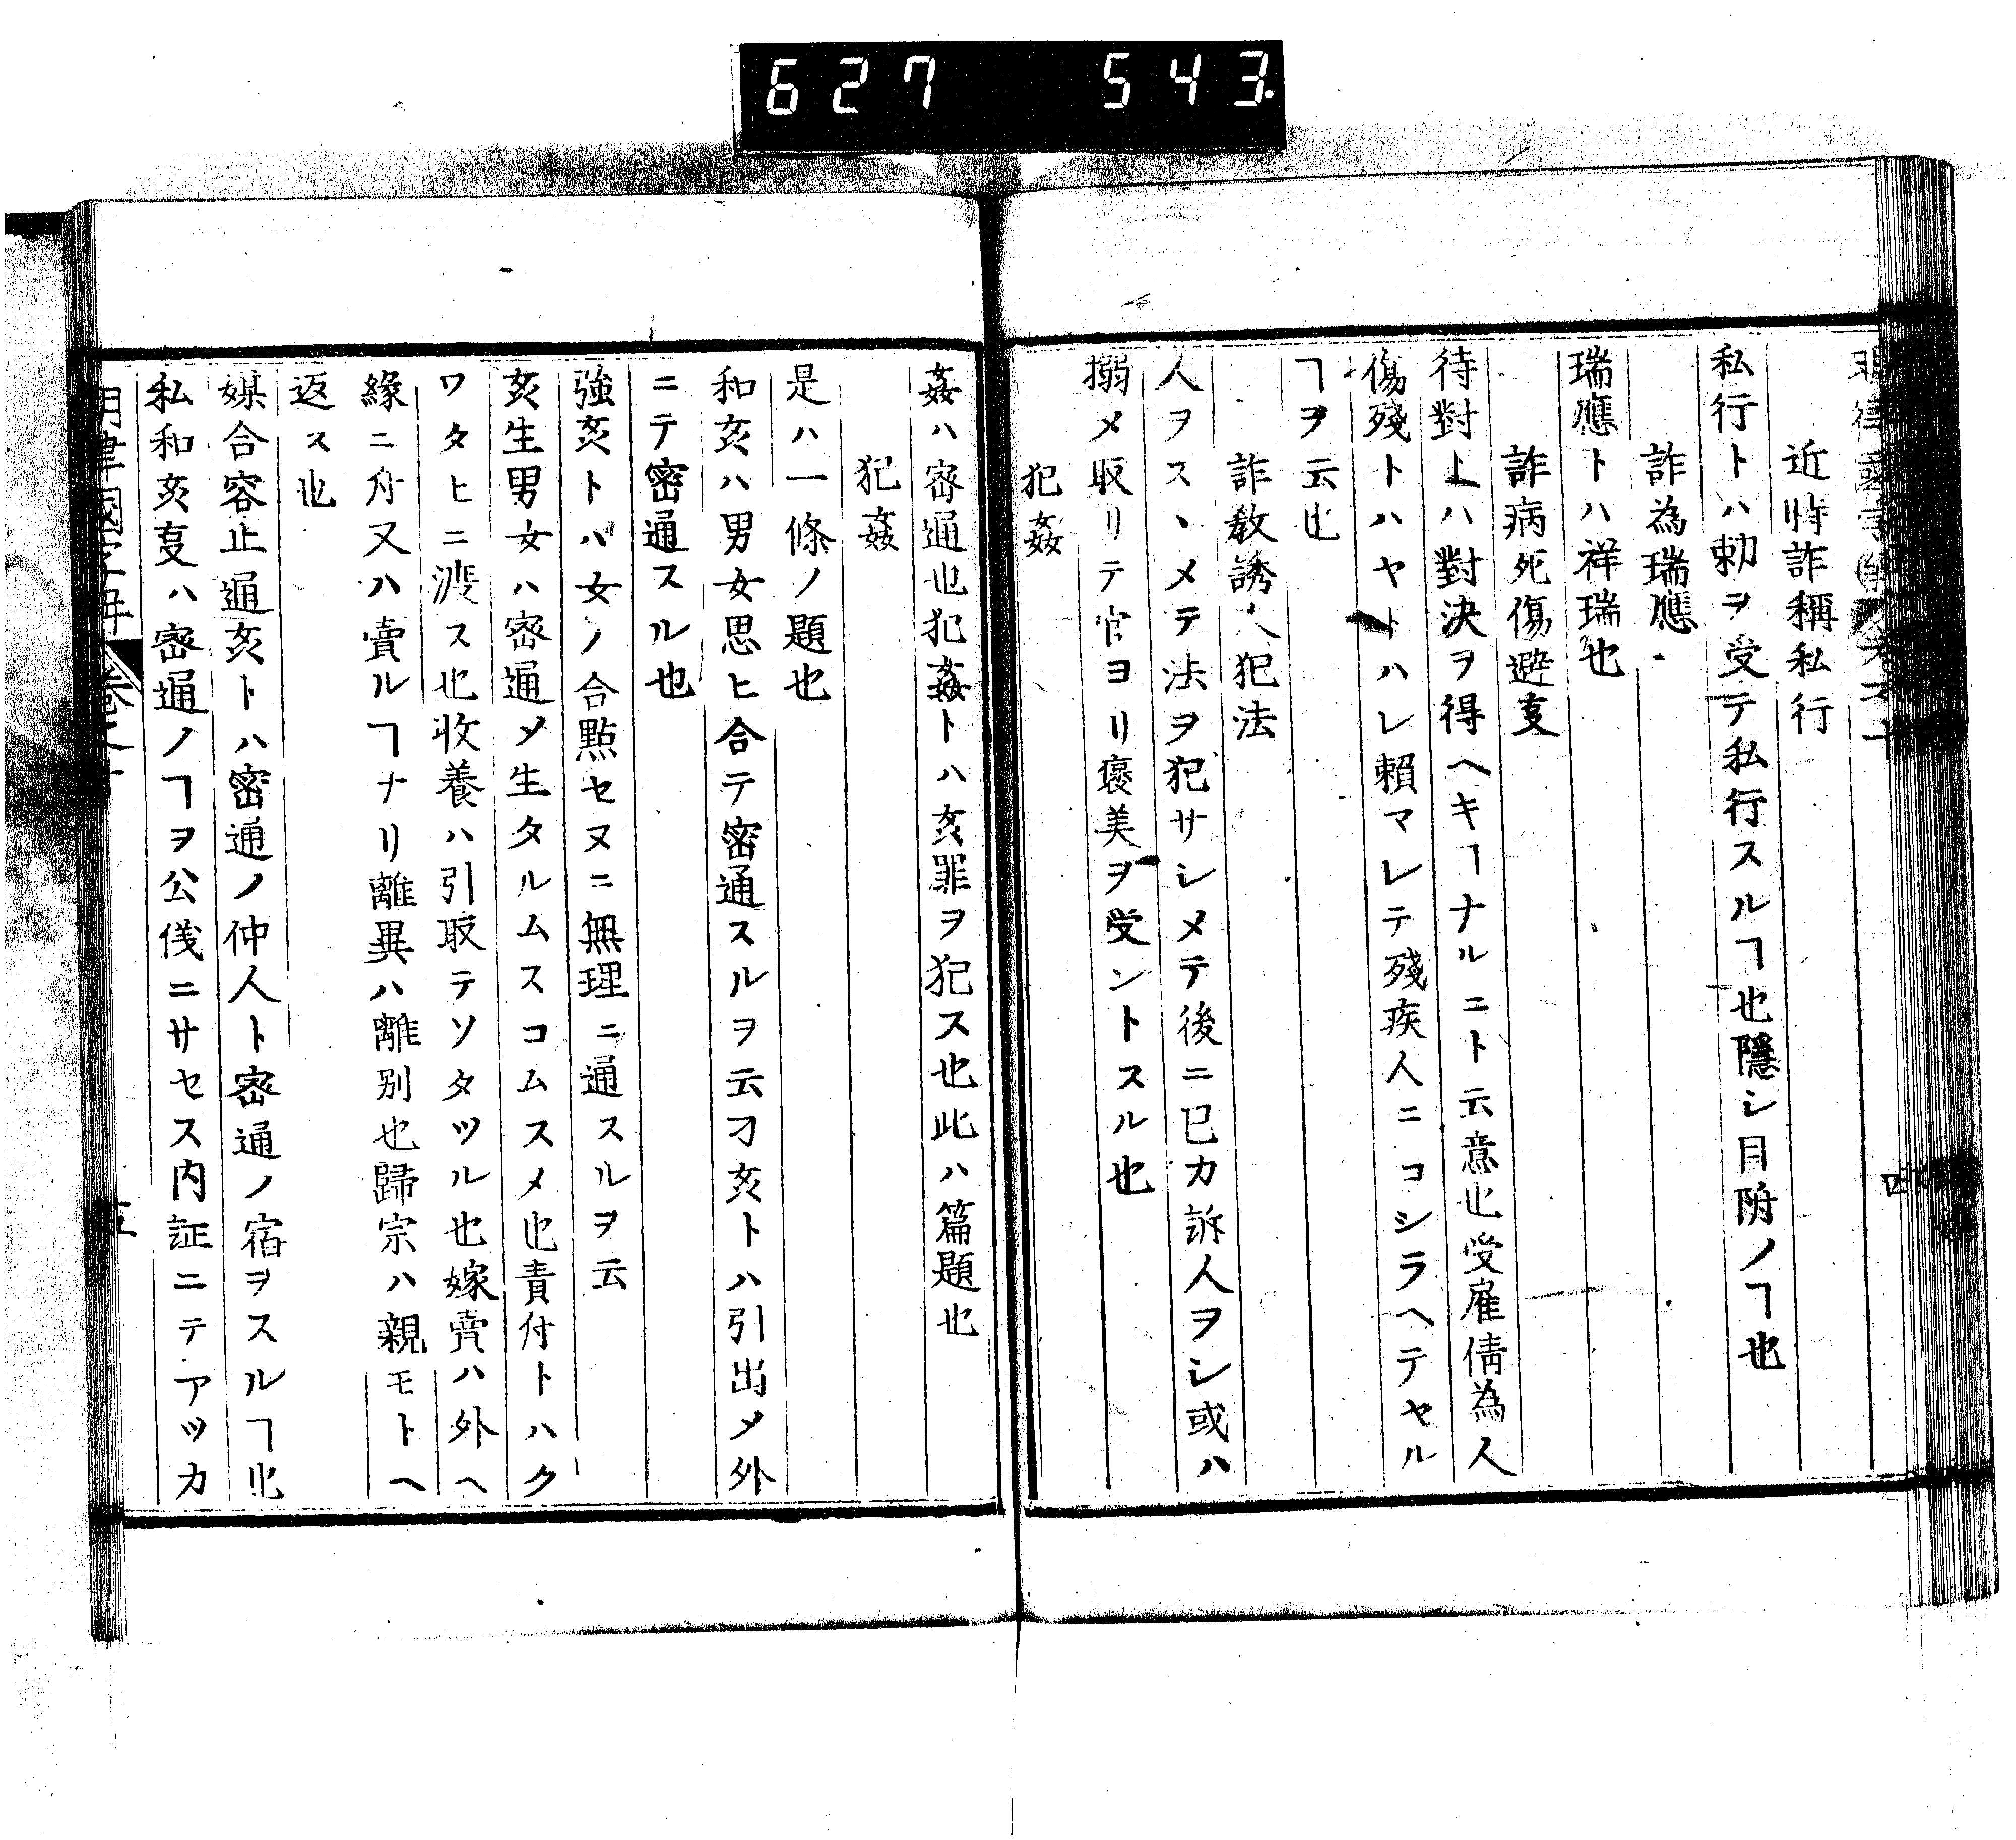 627 543.
近侍詐稱私行
私行トハ勅ヲ受テ私行スルヿ也隱シ目附ノヿ也
詐為瑞應
瑞應トハ祥瑞也
詐病死傷避叓
待對トハ對決ヲ得ヘキヿナルニト云意也受雇倩為人
傷殘トハヤトハレ賴マレテ殘疾人ニコシラヘテヤル
ヿヲ云也
詐敎誘人犯法
人ヲスヽメテ法ヲ犯サシメテ後ニ已カ訴人ヲシ或ハ
搦メ取リテ官ヨリ褒美ヲ受ントスル也
犯姦
姦ハ密通也犯姦トハ姦罪ヲ犯ス也此ハ篇題也
犯姦
是ハ一條ノ題也
和姦ハ男女思ヒ合テ密通スルヲ云刁姦トハ引出〆外
ニテ密通スル也
強姦トハ女ノ合點セヌニ無理ニ通スルヲ云
姦生男女ハ密通〆生タルムスコムスメ也責付トハク
ワタヒニ渡ス也收養ハ引取テソタツル也嫁賣ハ外ヘ
緣ニ付又ハ賣ルヿナリ離異ハ離别也歸宗ハ親モトヘ
返ス也
媒合容止通姦トハ密通ノ仲人ト密通ノ宿ヲスルヿ也
私和姦叓ハ密通ノヿヲ公儀ニサセス内証ニテアツカ
明律國字解 卷之十
五